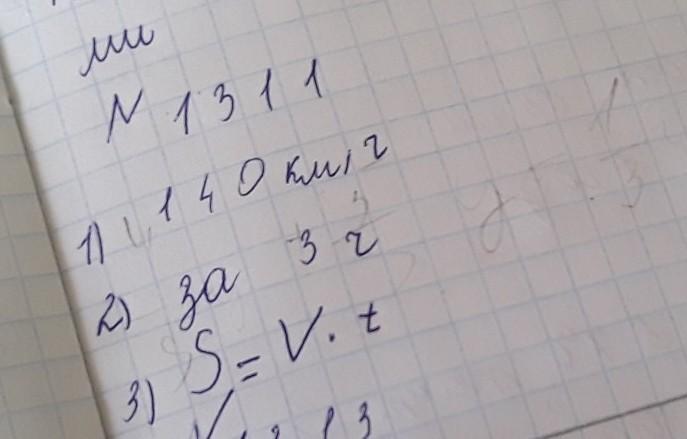 ми
N 1311
1) 140 км/ч
2) за 3 ч
3) S = V · t
N 1313